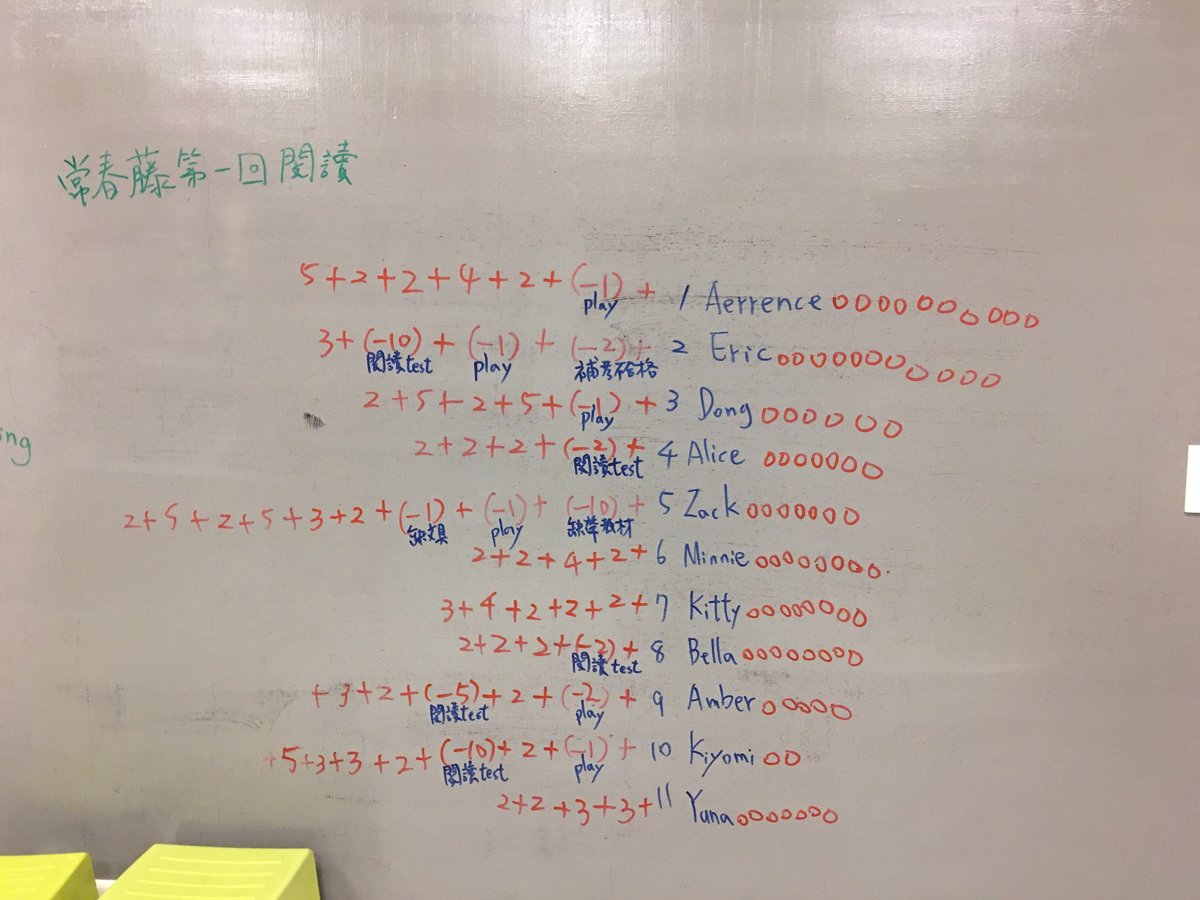 常春藤第一回閱讀
5+2+2+4+2+(-1)+ 1 Aerrence ○○○○○○○○○○
play
3+(-10)+(-1)+(-2)+ 2 Eric ○○○○○○○○○○○
閱讀test play 補考不合格
2+5+2+5+(-1)+3 Dong ○○○○○○
play
2+2+2+(-2)+ 4 Alice ○○○○○○○
閱讀test
ing
2+5+2+5+3+2+(-1)+(-1)+(-10)+ 5 Zack ○○○○○○○
play
2+2+4+2+6 Minnie ○○○○○○○○
3+4+2+2+2+7 Kitty ○○○○○○○○
2+2+2+(-2)+ 8 Bella ○○○○○○○○
閱讀test
+3+2+(-5)+2+(-2)+ 9 Amber ○○○○○
閱讀test play
+5+3+3+2+(-10)+2+(-1)+ 10 Kiyomi ○○
閱讀test play
2+2+3+3+11 Yuna ○○○○○○○